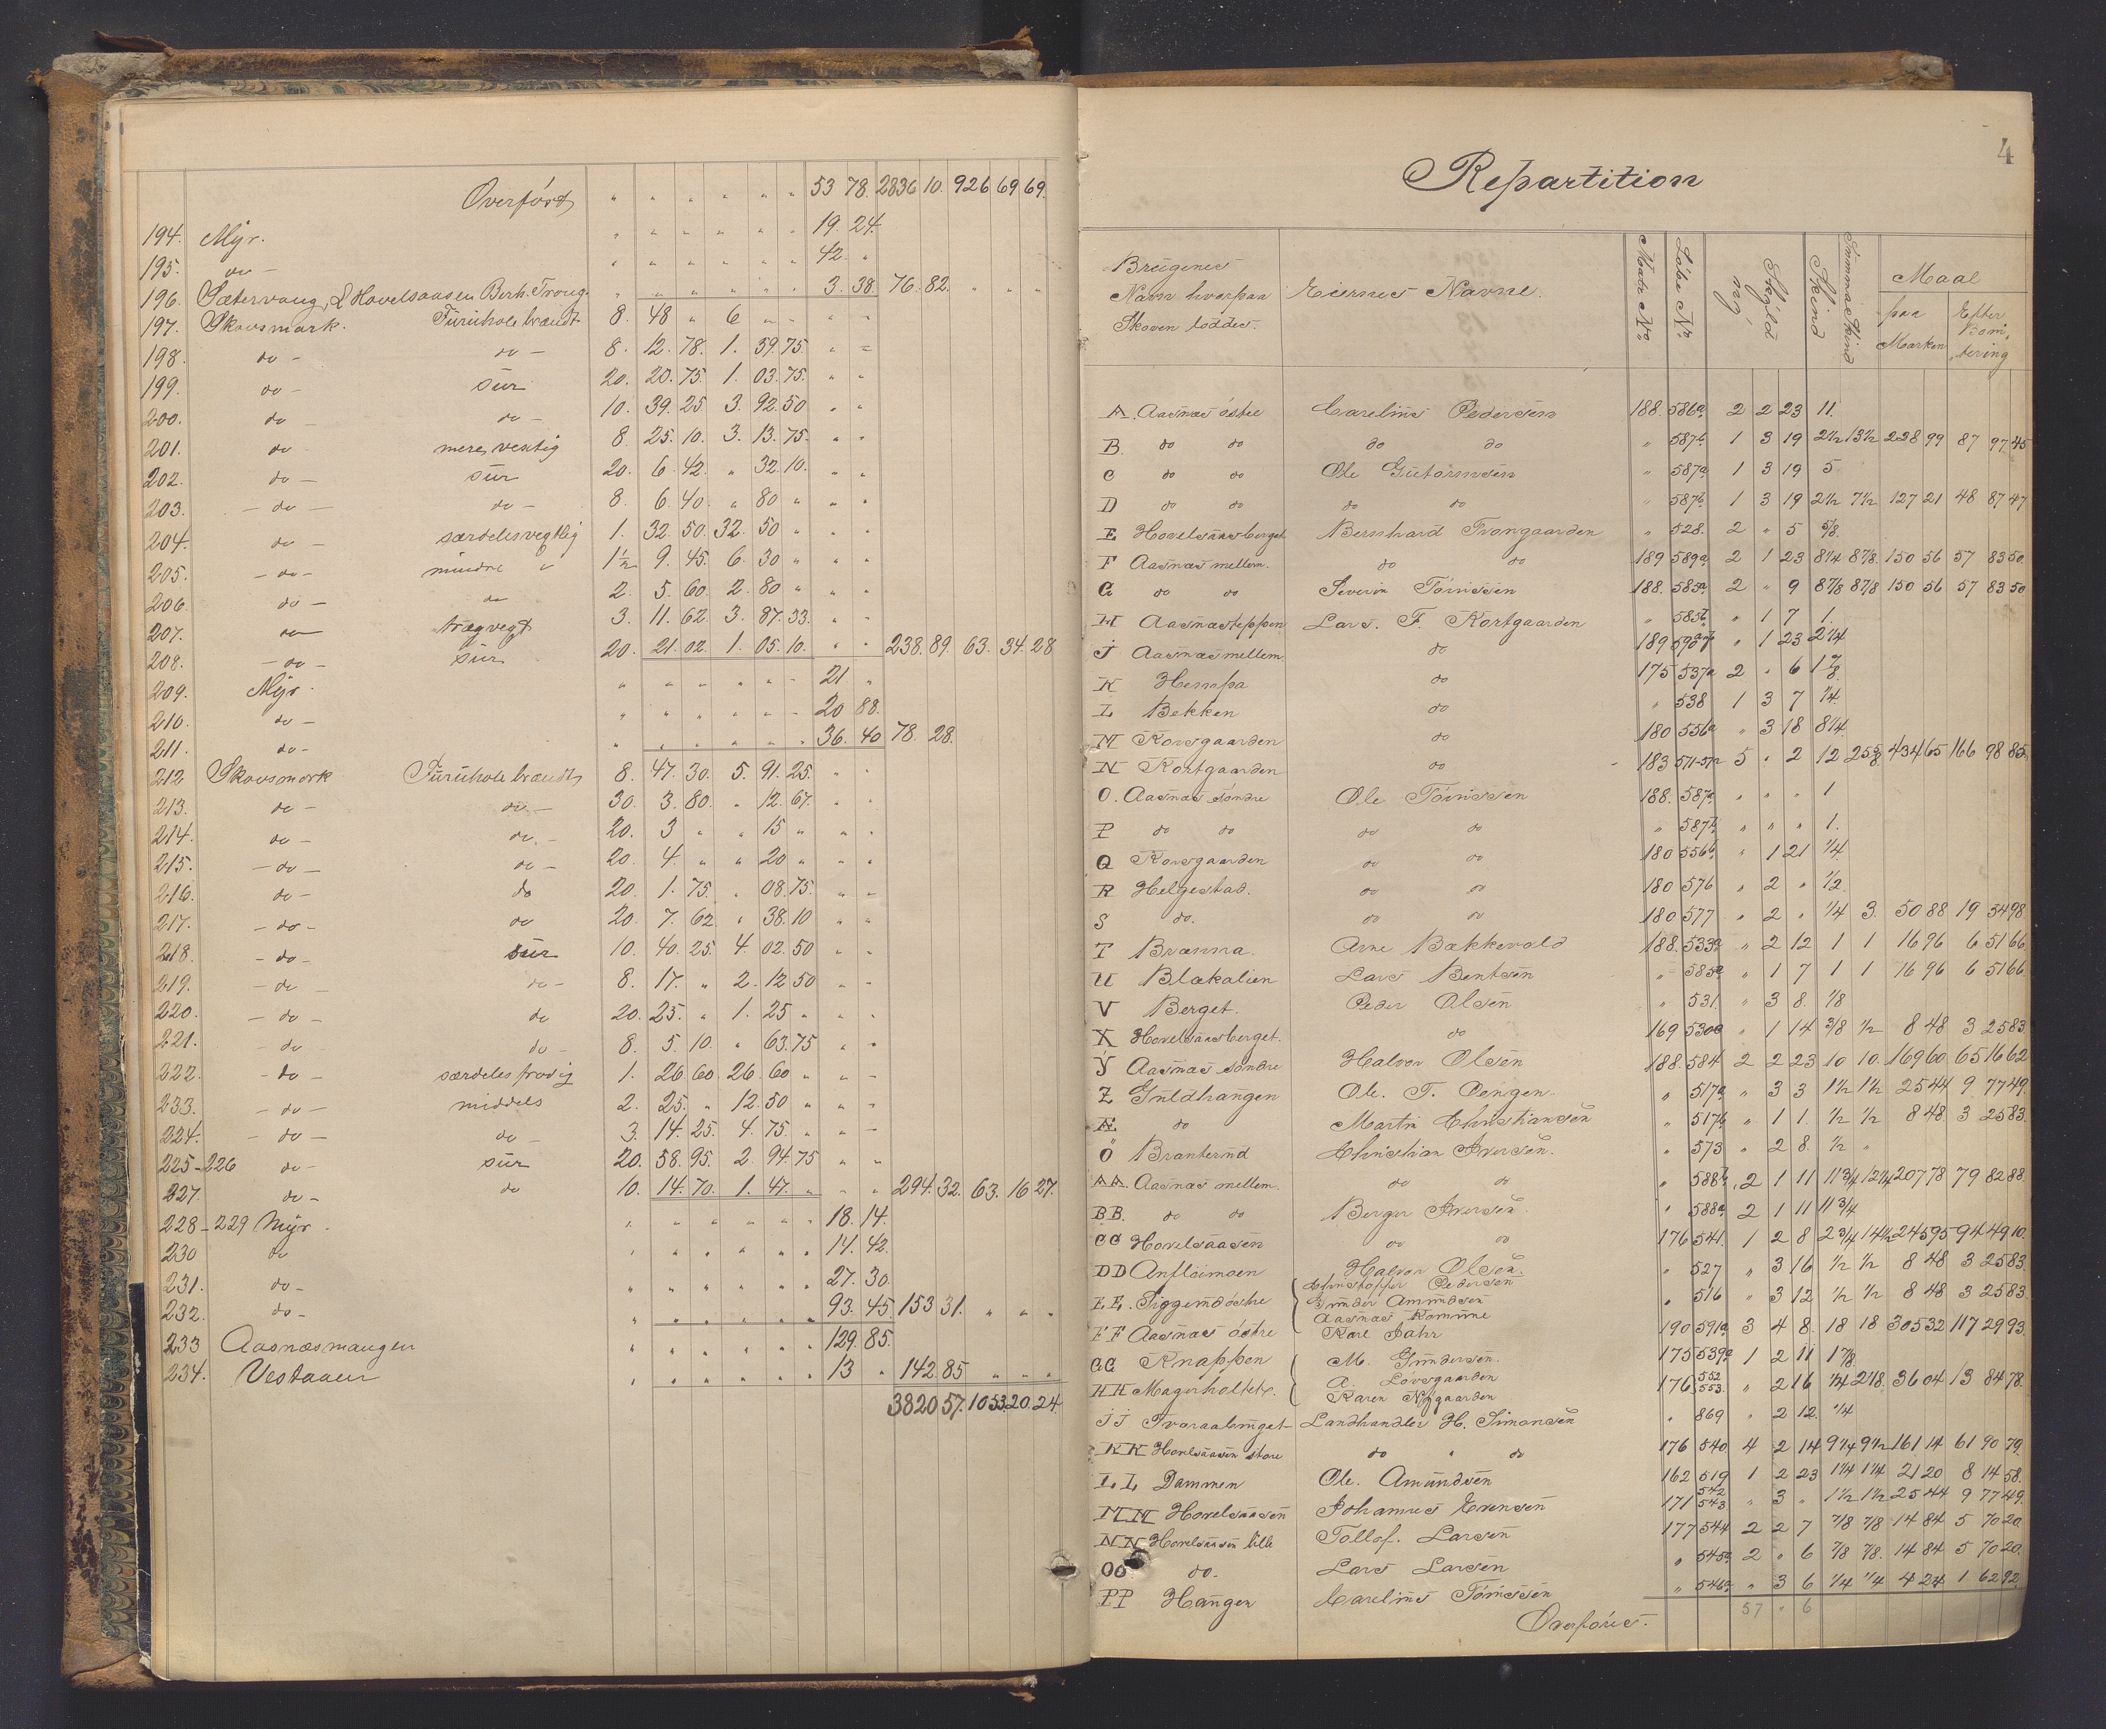 Overført " " " " " " " 53 78. 2836 10. 926 69 69.
194. Myr. " " " " " " " 19. 24.
195. do — " " " " " " " 42. "
196. Sætervang, & Hovelsaasen Berh. Trong. " " " " " " " 3. 38. 76. 82. " " "
197. Skovsmark. Furuholt brændt 8. 48 " 6 " " " "
198. do — do — 8. 12. 78. 1. 39. 75. " "
199. do — sur 20. 20. 75. 1. 03. 75. " "
200. do — do — 10. 39. 25 3. 92. 50 " "
201. do meres vestig 8. 25. 10. 3. 13. 75. " "
202. do — sur 20. 6. 42. " 32. 10. " "
203. — do — do — 8. 6. 40. " 80 " " "
204. do — særdeles vegtlig 1. 32. 50. 32. 50 " " "
205. — do — mindre " 1½ 9. 45. 6. 30 " " "
206. do — do 2. 5. 60. 2. 80 " " "
207. do trægvegt 3. 11. 62. 3. 87. 33. " "
208. — do — sur 20. 21. 02. 1. 05. 10. " " 238. 89. 63. 34. 28
209. Myr. " " " " " " " 21 "
210. do — " " " " " " " 20 88.
211. do — " " " " " " " 36. 40 78. 28.
212 Skovsmark Furuholt brændt 8. 47. 30. 5. 91. 25. " "
213. do — do — 30. 3. 80. " 12. 67. " "
214. do — do. — 20. 3 " " 15 " " "
215. — do — do — 20. 4. " " 20 " " "
216. do — do 20. 1. 75. " 08. 75. " "
217. — do — do 20. 7. 62. " 38. 10 " "
218. — do — sur 10. 40. 25. 4. 02. 50 " "
219. — do — do — 8. 17. " 2. 12 50 " "
220. — do — do 20. 25. " 1. 25 " " "
221. — do — do — 8. 5. 10. " 63. 75 " "
222. — do — særdeles frodig 1. 26 60. 26. 60 " " "
233. — do — middels 2. 25. " 12. 50 " " "
224. — do — do — 3. 14. 25. 4. 75. " " "
225–226 do — sur 20. 58. 95. 2. 94. 75 " "
227. do — do 10. 14. 70. 1. 47. " " " 294. 32. 63. 16 27.
228–229 Myr. " " " " " " " 18. 14.
230 do " " " " " " " 14. 42.
231. do — " " " " " " " 27. 30.
232. do — " " " " " " " 93. 45. 153 31. " " "
233 Aasnæsmangen " " " " " " " 129. 85.
234. Vestaaen " " " " " " " 13 " 142. 85 " " "
3820 57. 1053. 20. 24.
4
Repartition
Brugenes Navn hvorpaa Skoven loddes.
Eiernes Navne.
Matr. No.
Løbe Nr.
Skyld ny
Skind
Summa Skind
Maal
paa Marken
Efter Bonitering
A. Aasnæs østre Caroline Pedersen 188. 586a 2 2 23 11.
B. do do do do " 587b 1 3 19 2½ 13½ 228 99 87 97. 45
C do do Ole Guttormsen " 587a 1 3 19 5
D do do do do " 587b 1 3 19 2½ 7½ 127 21 48 87 47
E Hovelsaasberget Bernhard Trongaarden " 528. 2 " 5 5/8
F Aasnæs mellem. do do 189 589a 2 1 23 8¼ 8 7/8 150 56 57 83 50.
G do do Severin Tönissen 188. 585a 2 " 9 8 7/8 8 7/8 150 56 57 83 50
H Aasnæsteppen Lars. F. Kortgaarden " 585b " 1 7 1.
J Aasnæs mellem do 189 590a " 1 23 2¼
K Hempa do 175 537a 2 " 6 1 7/8
L Bekken do " 538 1 3 7 ¼
M Kovsgaarden do 180 556a " 3 18 8¼
N Kortgaarden do 183 571–572 5 " 2 12 25 5/8 434 65 166 98 85
O. Aasnæs söndre Ole Tönissen 188. 587a " " " 1
P do do do do " 587b " " " 1.
Q Kovsgaarden do do 180 556b " 1 21 ¼
R Helgestad. do do 180 576 " 2 " ½
S do. do do 180 577 " 2 " ¼ 3. 50 88 19 54 98
T Brænna. Arne Bakkevold 188. 533a " 2 12 1 1 16 96 6 51 66
U Blakalien Lars Bentsen " 585a " 1 7 1 1 16 96 6 51 66.
V Berget. Peder Olsen " 531. " 3 8. 1/8
X Hovelsaasberget. do 169 530a " 1 14 3/8 ½ 8 48 3 25 83
Y Aasnæs söndre Halvor Olsen 188. 584 2 2 23 10 10. 169 60 65 16 62
Z Guldhaugen Ole. T. Pengen. " 517a " 3 3 1½ 1½ 25 44 9 77 49.
Æ do Martin Christiansen " 517b " 1 1. ½ ½ 8 48 3 25 83.
Ö Branternd Christian Iversen. " 573 " 2 8. ½ "
AA. Aasnæs mellem. do do " 588b 2 1 11 11¾ 12¼ 207 78 79 82 88.
BB. do do Berger Iversen. " 588a 2 1 11 11¾
CC Hovelsaasen do do 176 541. 1 2 8 2¾ 14½ 245 95 94 49 10.
DD Anflöimoen Halvor Olsen. " 527 " 3 16 ½ ½ 8 48 3 25 83.
EE. Siggerud østre Christoffer Pedersen Gunder Amundsen Aasnæs Komune " 516 " 3 12 ½ ½ 8 48 3 25 83.
FF Aasnæs östre Kare Jahr 190 591a 3 4 8. 18 18 305 32 117 29 93.
GG Knappen M. Gundersen. 175 539a 1 2 11 1 7/8
HH Magerholtet. A. Lövsgaarden Karen Nygaarden 176 552 553. " 2 16 ¼ 2 1/8. 36 04 13 84 78.
JJ Tvaraaberget Landhandler H. Simonsen " 869 " 2 12. ¼
KK Hovelsaasen store do " do 176 540 4 2 14 9¼ 9½ 161 14 61 90 79.
LL Dammen Ole. Amundsen 162 519 1 2 23 1¼ 1¼ 21 20 8 14 58.
MM Hovelsaasen Johannes Evensen 171 542 543 " 3 " 1½ 1½ 25 44 9 77 49.
NN Hovelsaasen lille Tollof. Larsen 177 544 2 2 7 7/8 7/8 14 84 5 70 20
OO do. Lars Larsen " 545a 2 " 6 7/8 7/8. 14 84 5 70 20.
PP Haugen Caroline Tönissen " 546a " 3 6 ¼ ¼ 4 24 1 62 92
57 " 6
Overføres.